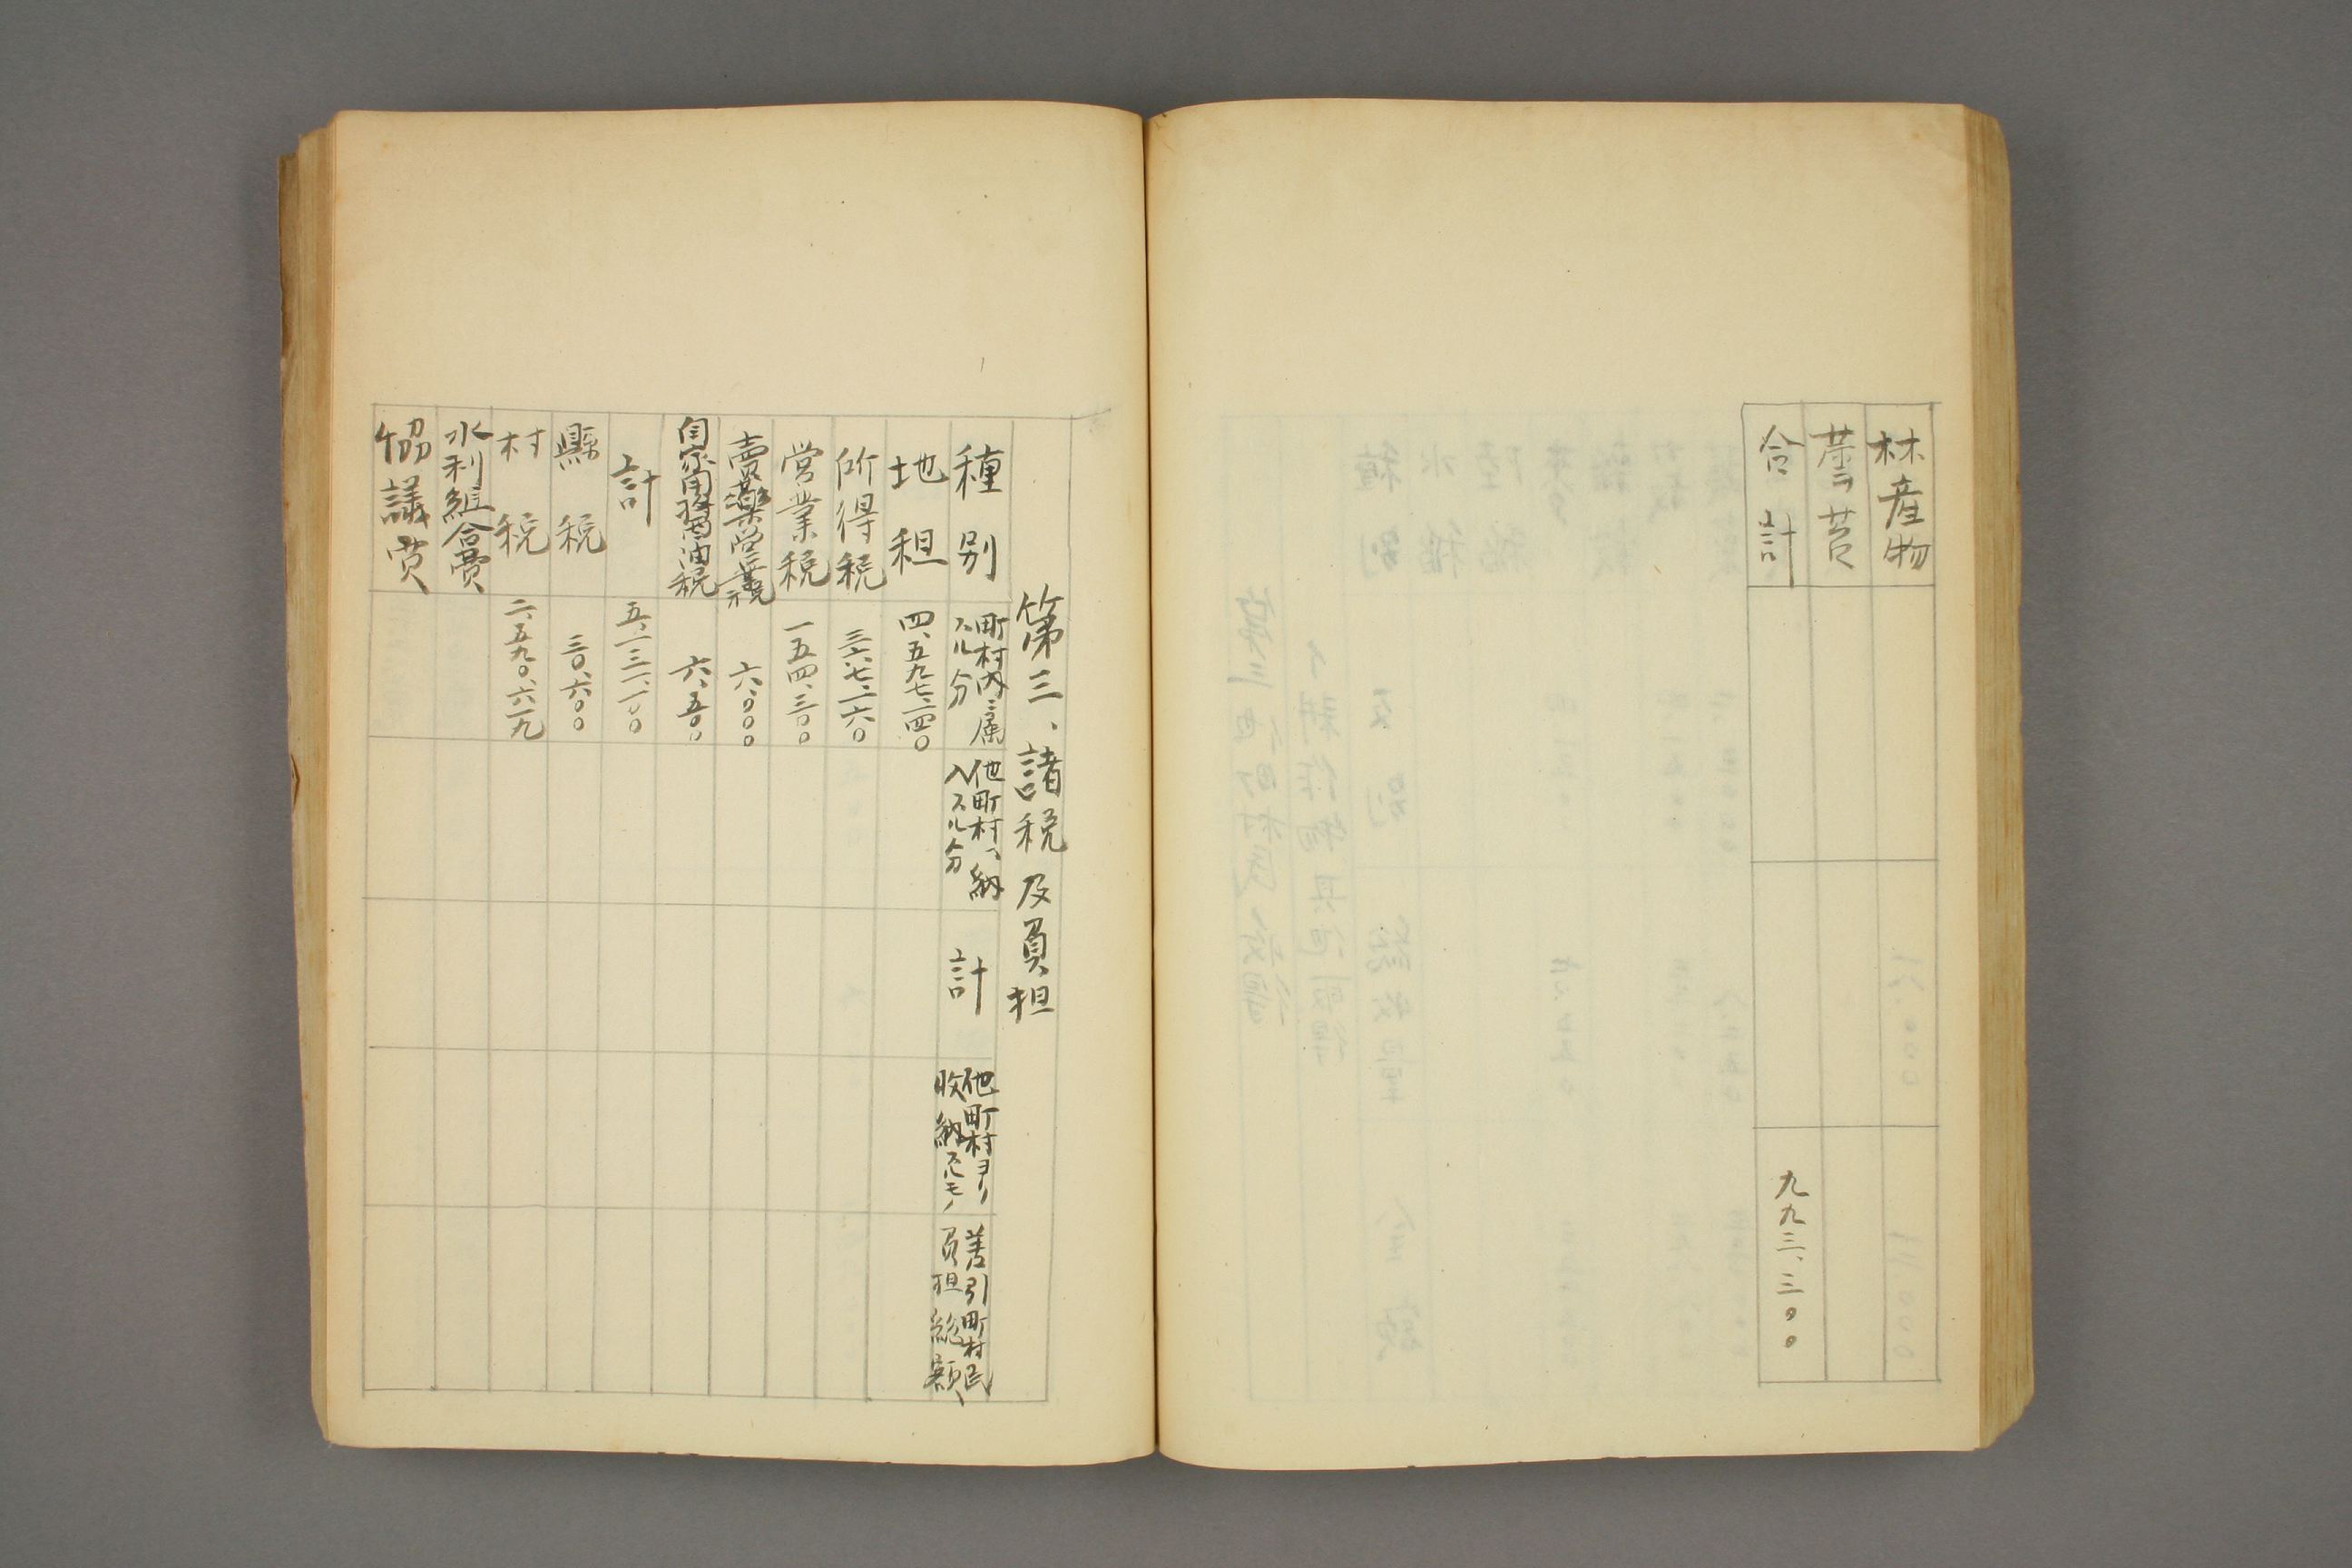 林産物
蕓苔
合計 九九三、三〇〇
第三、諸税及負担
種別 町村内ニ属スル分 他町村ヘ納入スル分 計 他町村ヨリ收納スルモノ 差引町村民負担総額
地租 四、五九七、一四〇
所得税 三六七、一六〇
営業税 一五四、三〇〇
売薬営業税 六、〇〇〇
自家用醤油税 六、五〇〇
計 五、一三一、一〇〇
縣税 三〇、六〇〇
村税 二、五九〇、六一九
水利組合費
協議費